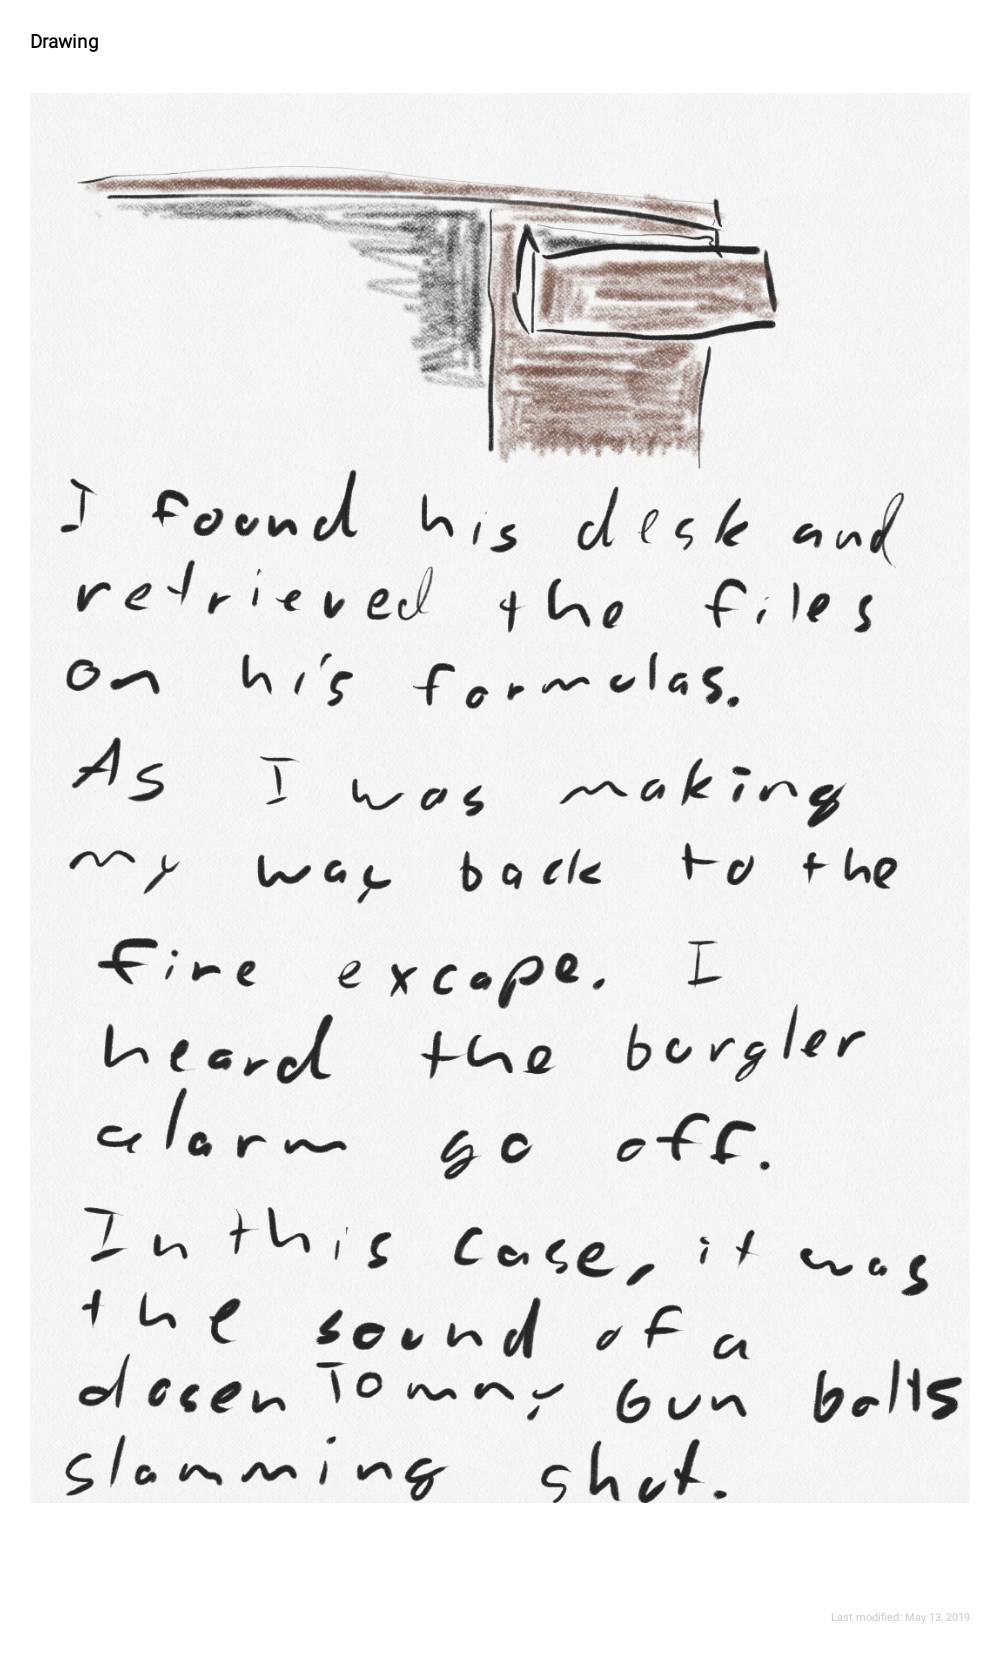 Drawing
I found his desk and
retrieved the files
on his formulas.
As I was making
my way back to the
fire excape. I
heard the burgler
alarm go off.
In this case, it was
the sound of a
dosen Tommy Gun bolts
slamming shut.
Last modified: May 13, 2019